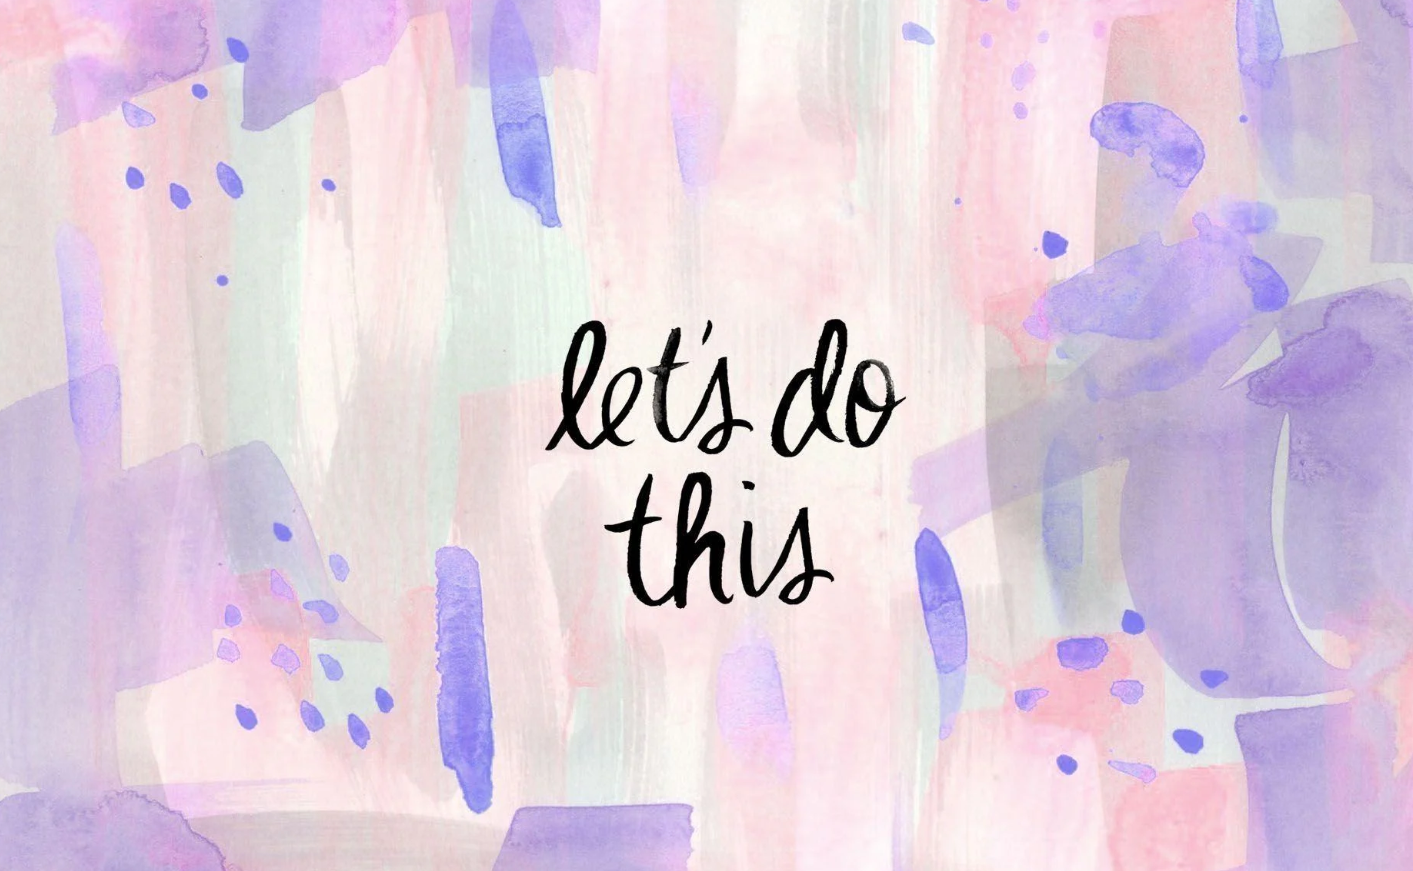 let's do
this